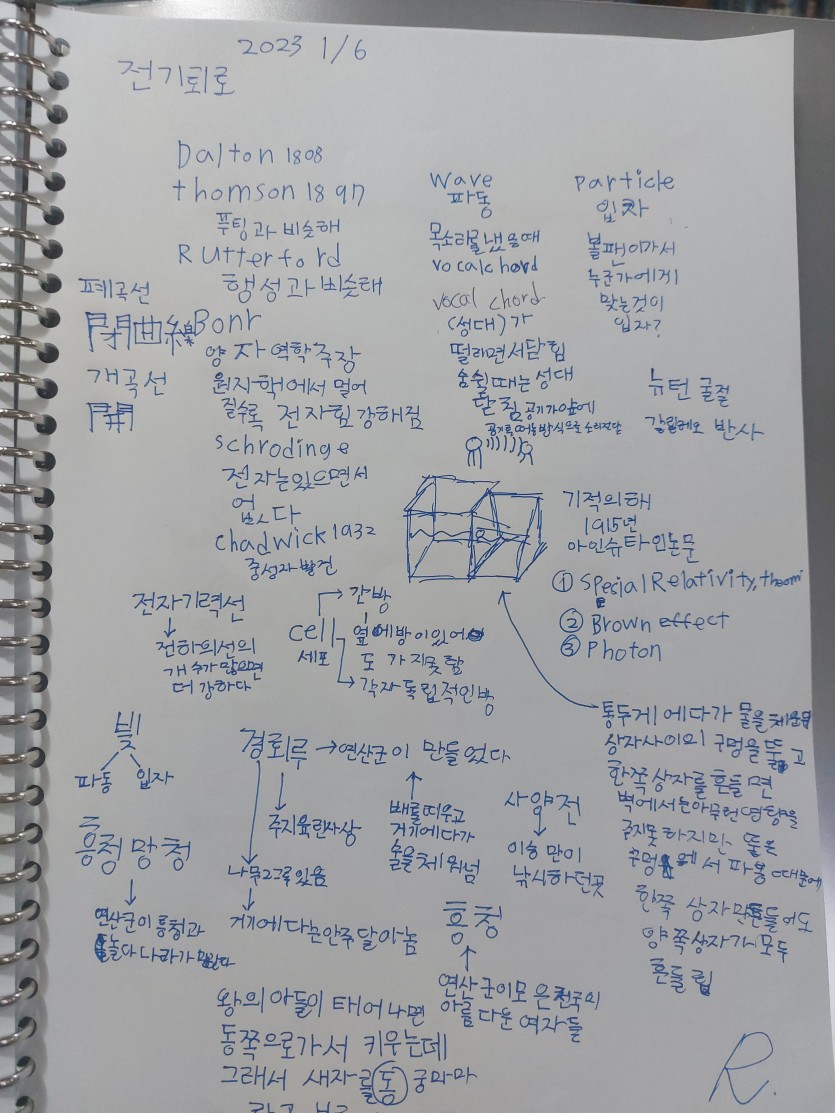 2023 1/6
전기퇴로
Dalton 1808
thomson 1897
푸딩과 비슷해
RUtterford
행성과 비슷해
폐곡선
閉曲線
개곡선
開
Bonr
양자역학주장
원자핵에서 멀어
질수록 전자힘 강해짐
schrodinge
전자는있으면서
없다
chadwick 1932
중성자 발견
wave
파동
목소리를 냈을때
vocalchord
vocal chord
(성대)가
떨리면서닫힘
숨쉴때는성대
닫침 공기가앞에
particle
입자
볼팬이가서
누군가에게
맞는것이
입자?
뉴턴 굴절
갈릴레오 반사
기적의해
1915년
아인슈타인논문
① Spesial Relativity, theom
② Brown effect
③ Photon
전자기력선
전하의선의
개수가 많으면
더 강하다
cell
세포
간방
옆에방이있어
도 가지못함
각자독립적인방
통두게에다가 물을채운뒤
상자사이의 구멍을 뚫고
한쪽상자를흔들면
벽에서는아무런영향을
주지못하지만 뚫은
구멍에서 파동때문에
한쪽 상자만흔들어도
양쪽상자가모두
흔들림
빛
파동 입자
흥청망청
연산군이 흥청과
놀다 나라가 망했다
경회루 → 연산군이 만들었다
주지육린사상
나무2그루있음
거기에다는안주달아놈
배를띄우고
거기에다가
술을채워넘
사양전
이승만이
낚시하던곳
흥청
연산군이모은전국의
아름다운여자들
왕의 아들이 태어나면
동쪽으로가서 키우는데
그래서 새자를 동궁마마
라고 부름
R.